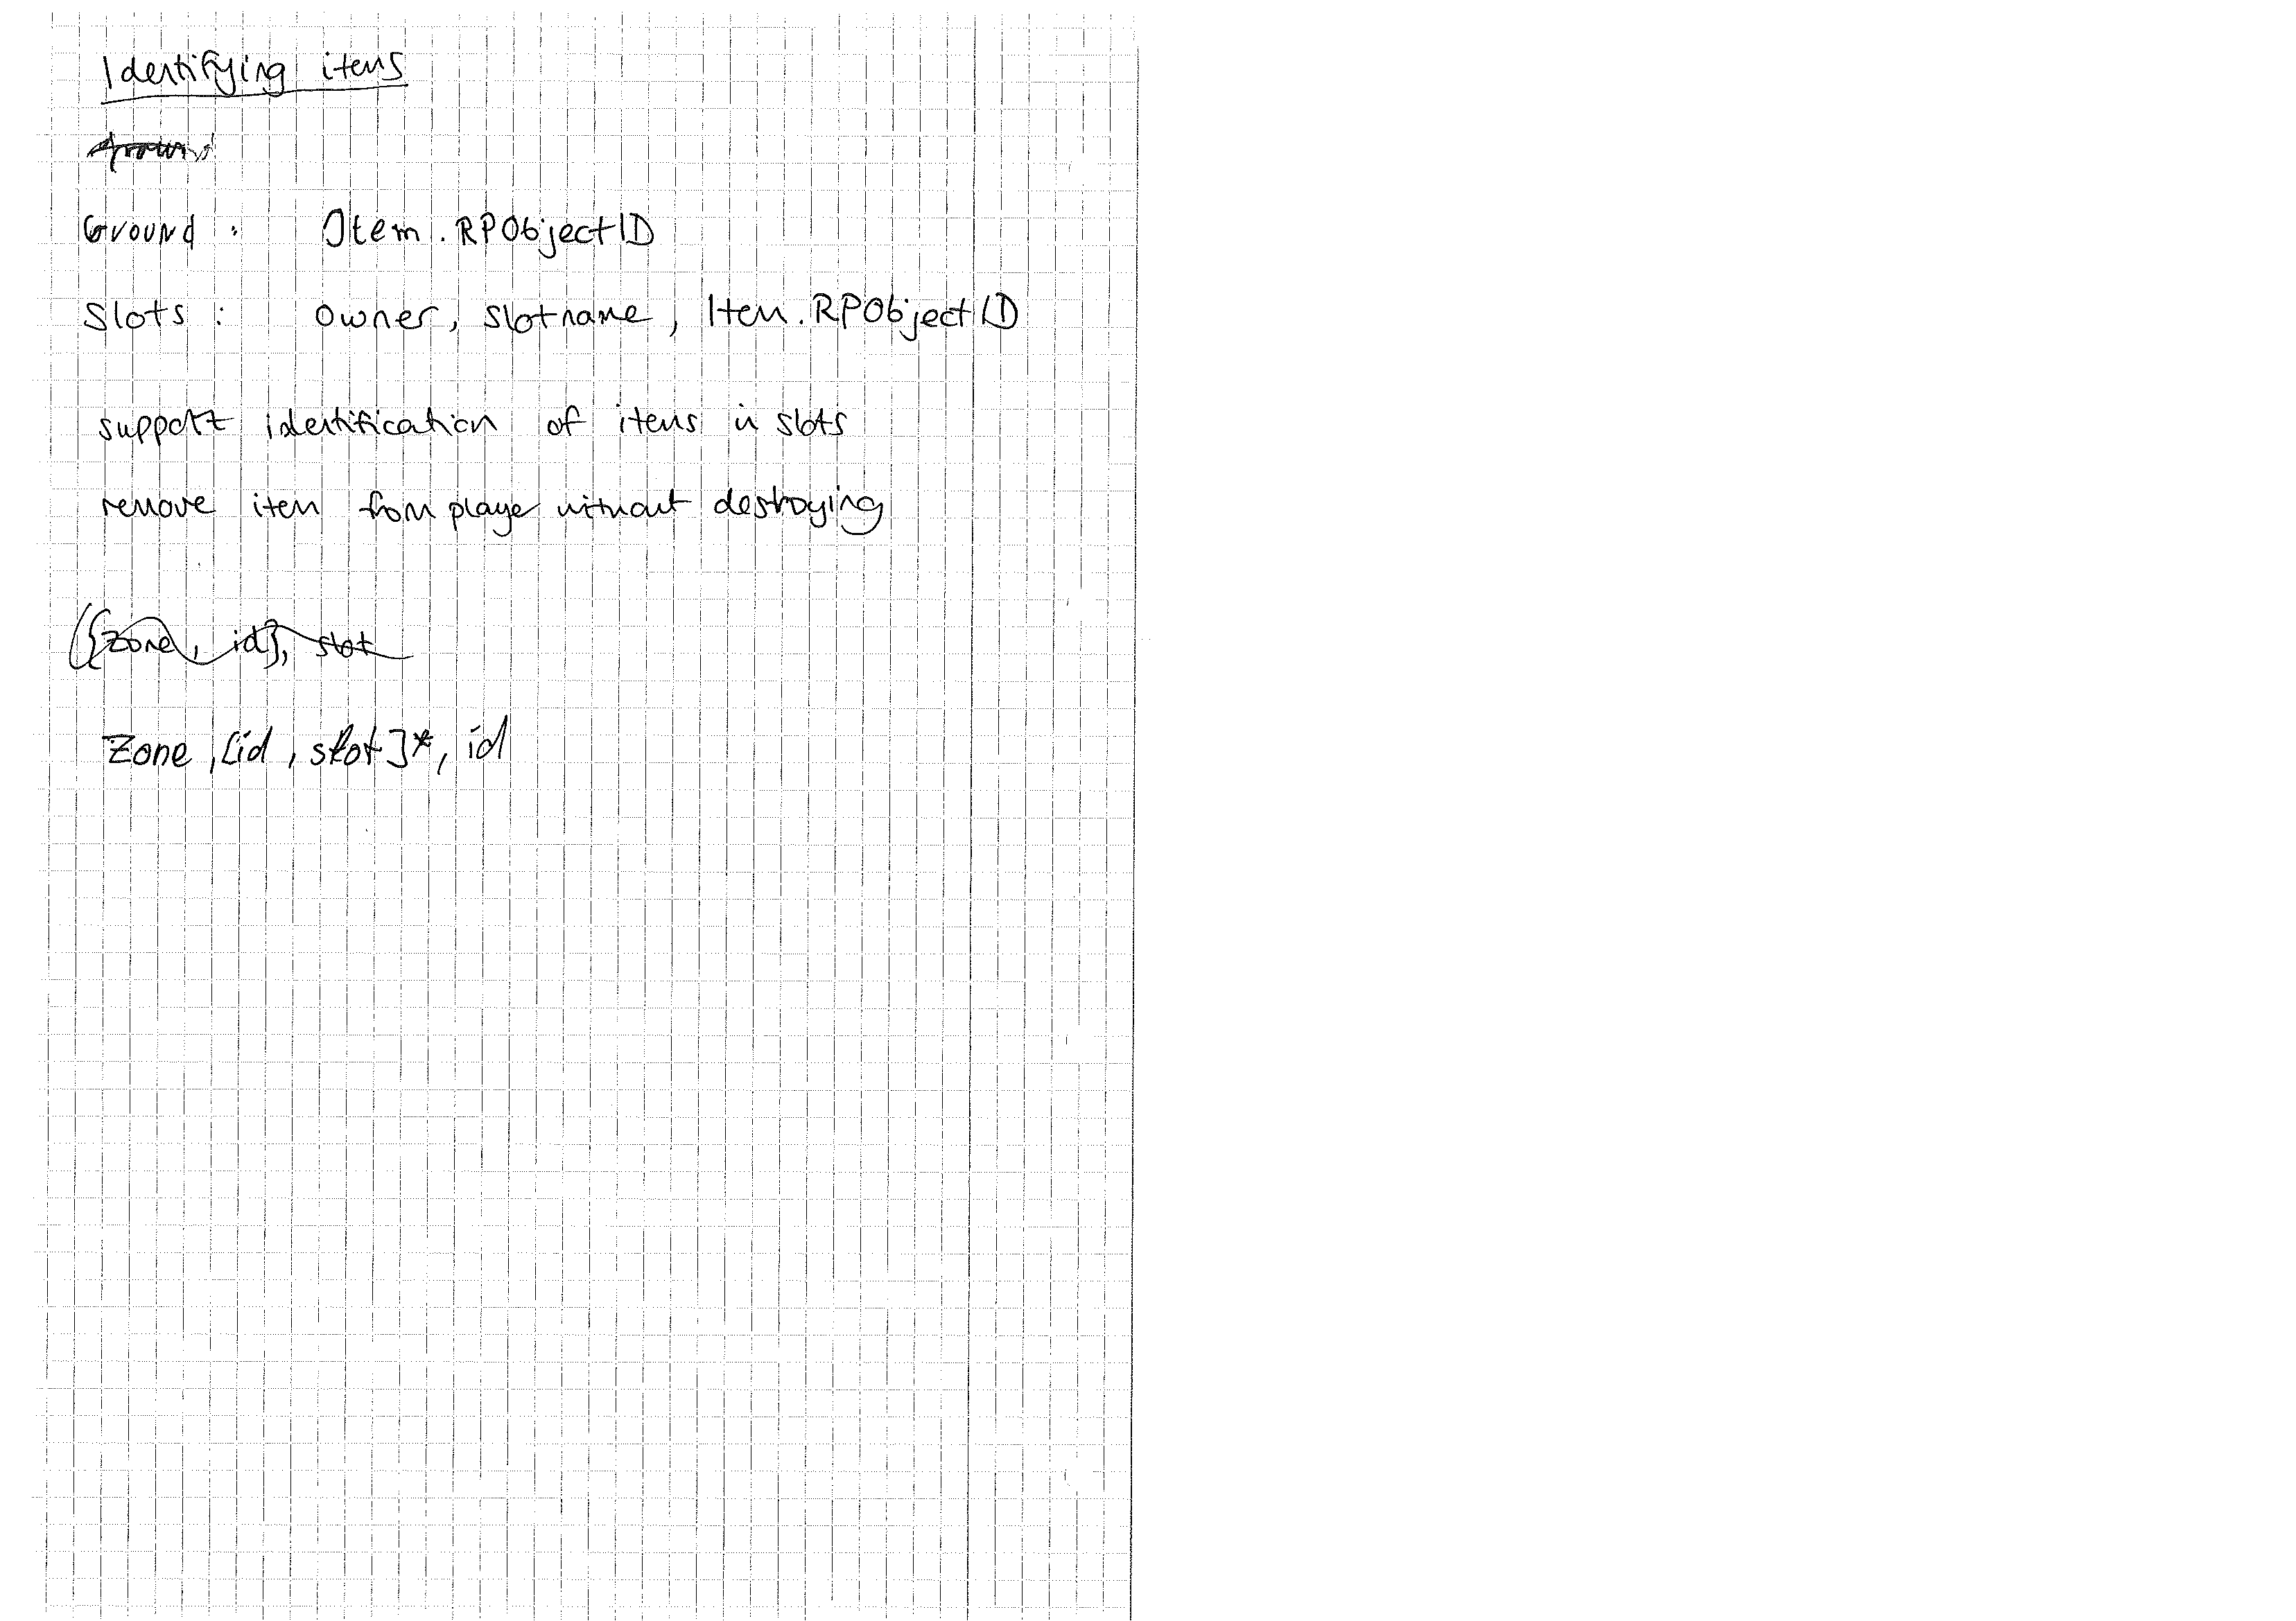 Identifying items
Ground : Item.RPObjectID
Slots : owner, slotname, Item.RPObjectID
support identification of items in slots
remove item from player without destroying
({zone, id}, slot
Zone, [id, slot]*, id